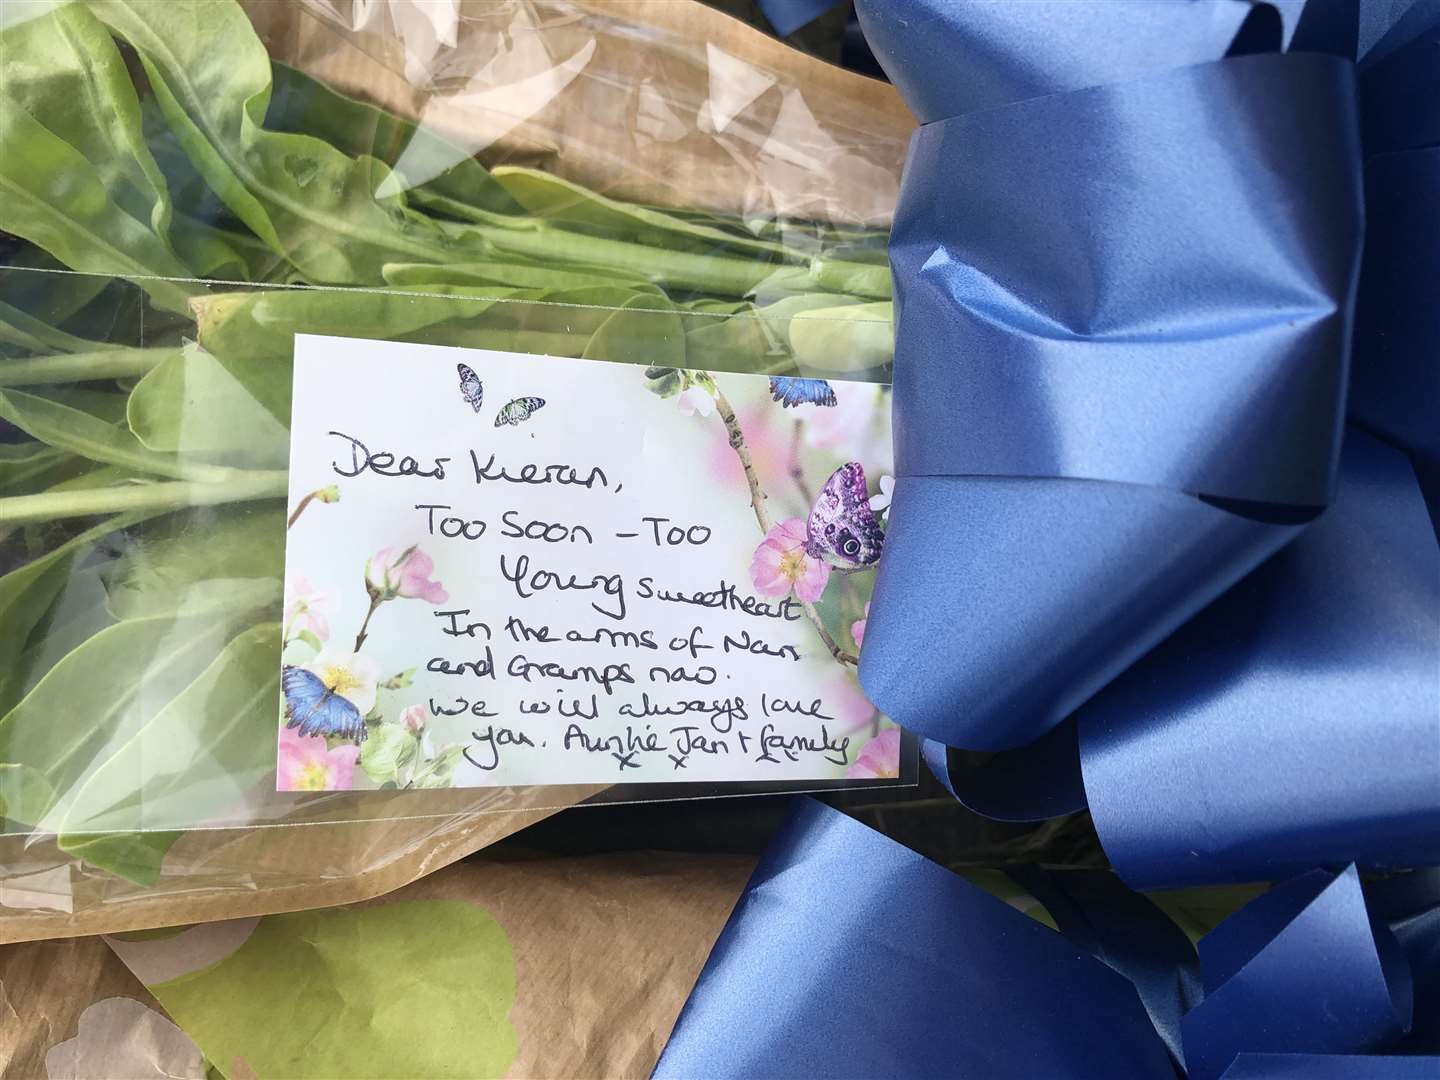 Dear Kieran,
Too Soon - Too
Young sweetheart
In the arms of Nan
and Gramps now.
We will always love
you. Auntie Jan + family
x x x x